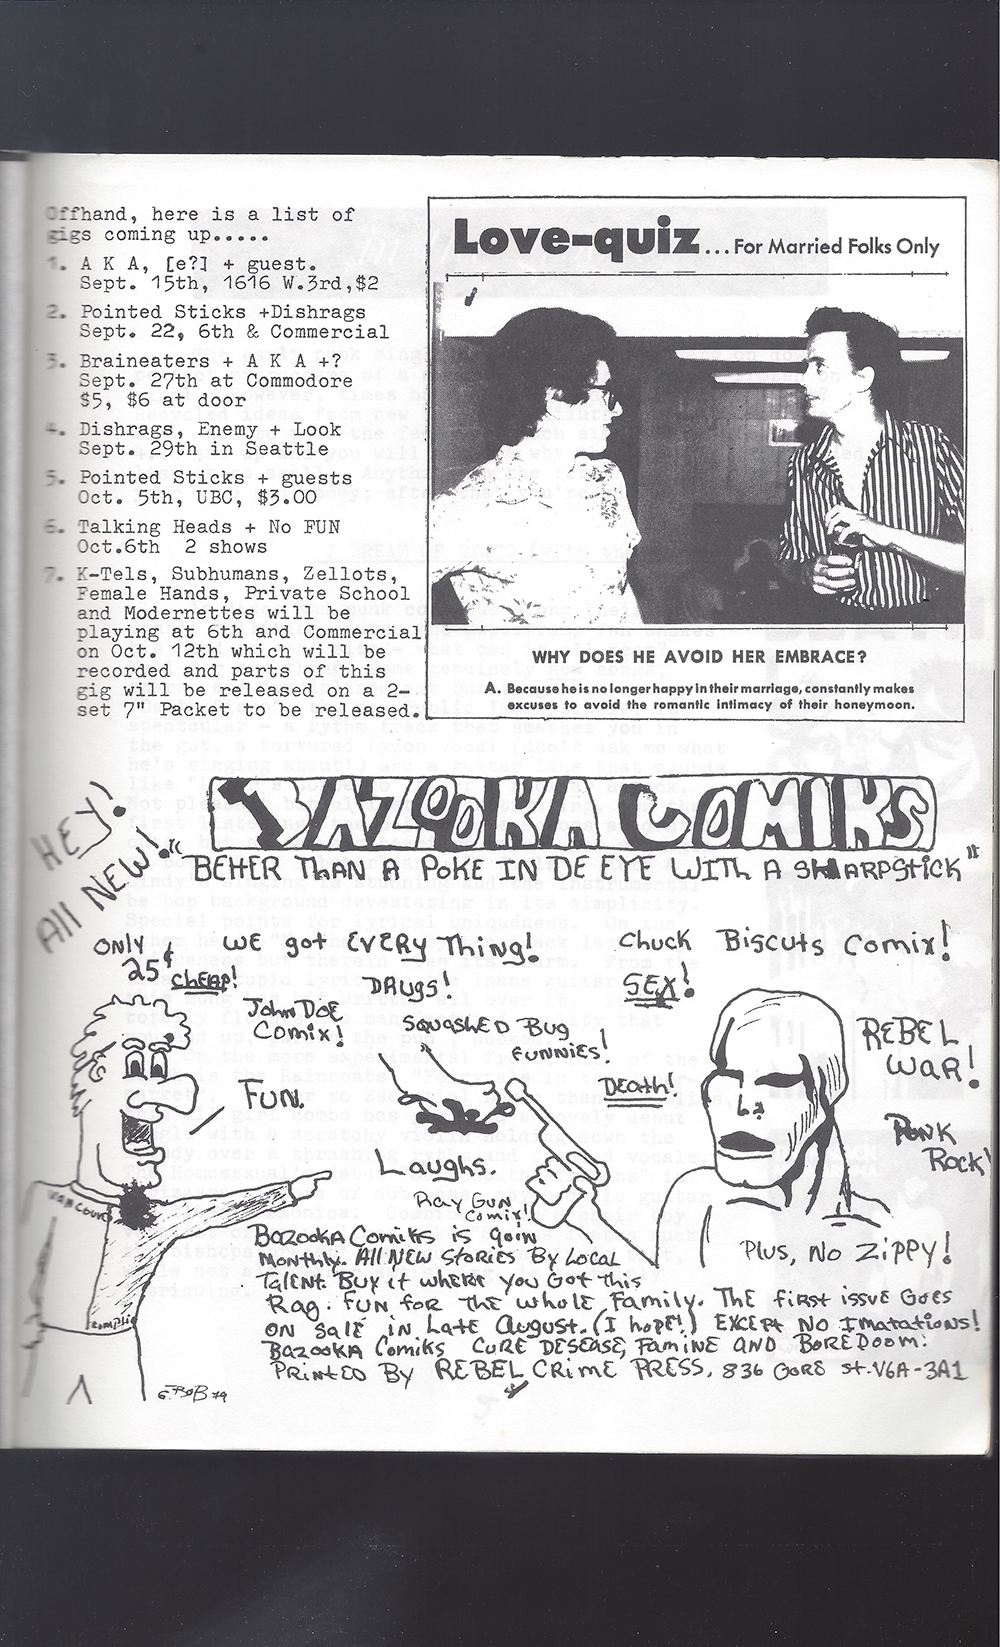 Offhand, here is a list of
gigs coming up.....
1. A K A, [e?] + guest.
Sept. 15th, 1616 W.3rd,$2
2. Pointed Sticks +Dishrags
Sept. 22, 6th & Commercial
3. Braineaters + A K A +?
Sept. 27th at Commodore
$5, $6 at door
4. Dishrags, Enemy + Look
Sept. 29th in Seattle
5. Pointed Sticks + guests
Oct. 5th, UBC, $3.00
6. Talking Heads + No FUN
Oct.6th 2 shows
7. K-Tels, Subhumans, Zellots,
Female Hands, Private School
and Modernettes will be
playing at 6th and Commercial
on Oct. 12th which will be
recorded and parts of this
gig will be released on a 2-
set 7" Packet to be released.
Love-quiz...For Married Folks Only
WHY DOES HE AVOID HER EMBRACE?
A. Because he is no longer happy in their marriage, constantly makes
excuses to avoid the romantic intimacy of their honeymoon.
HEY!
All NEW!
BAZOOKA COMIKS
"BETTER THAN A POKE IN DE EYE WITH A SHARPSTICK"
ONLY
25¢ CHEAP!
WE got EVERY Thing!
Chuck Biscuts Comix!
DRUgs!
SEX!
John DOE
Comix!
SQUASHED Bug
FUNNIES!
REBEL
WAR!
DEath!
FUN.
PUNK
ROCK!
Laughs.
Ray Gun
Comix!
VANCOUVER
Complic
Plus, No Zippy!
BazookA Comiks is goin
Monthly. All NEW Stories By Local
Talent. Buy it where you Got this
Rag. FUN for the whole Family. The first issue Goes
ON sale in Late August. (I hope!) EXCEPT NO Imatations!
BazookA Comiks CURE DESEASE, Famine AND BoreDoom.
Printed By REBEL Crime PRESS, 836 GORE St.V6A-3A1
G.BOB 79